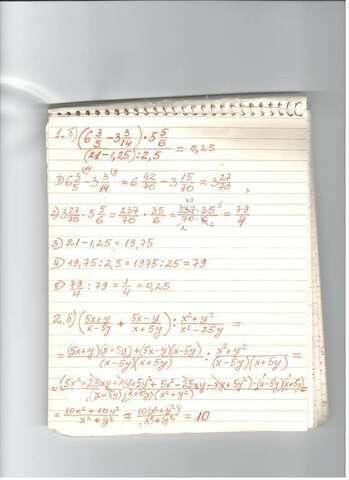 1. б) (6 3/5 − 3 3/14) · 5 5/6
(21 − 1,25) : 2,5 = 0,25
1) 6 3/5 − 3 3/14 = 6 42/70 − 3 15/70 = 3 27/70,
2) 3 27/70 · 5 5/6 = 237/70 · 35/6 = 237 · 35/70 · 6 = 79/4
3) 21 − 1,25 = 19,75
4) 19,75 : 2,5 = 1975 : 25 = 79
5) 79/4 : 79 = 1/4 = 0,25
2. б) (5x+y/x−5y + 5x−y/x+5y) : x²+y²/x²−25y =
= (5x+y)(x+5y)+(5x−y)(x−5y)/(x−5y)(x+5y) : x²+y²/(x−5y)(x+5y) =
= (5x²+25xy+xy+5y²+5x²−25xy−xy+5y²)·(x−5y)(x+5y)/(x−5y)(x+5y)(x²+y²) =
= 10x²+10y²/x²+y² = 10(x²+y²)/x²+y² = 10